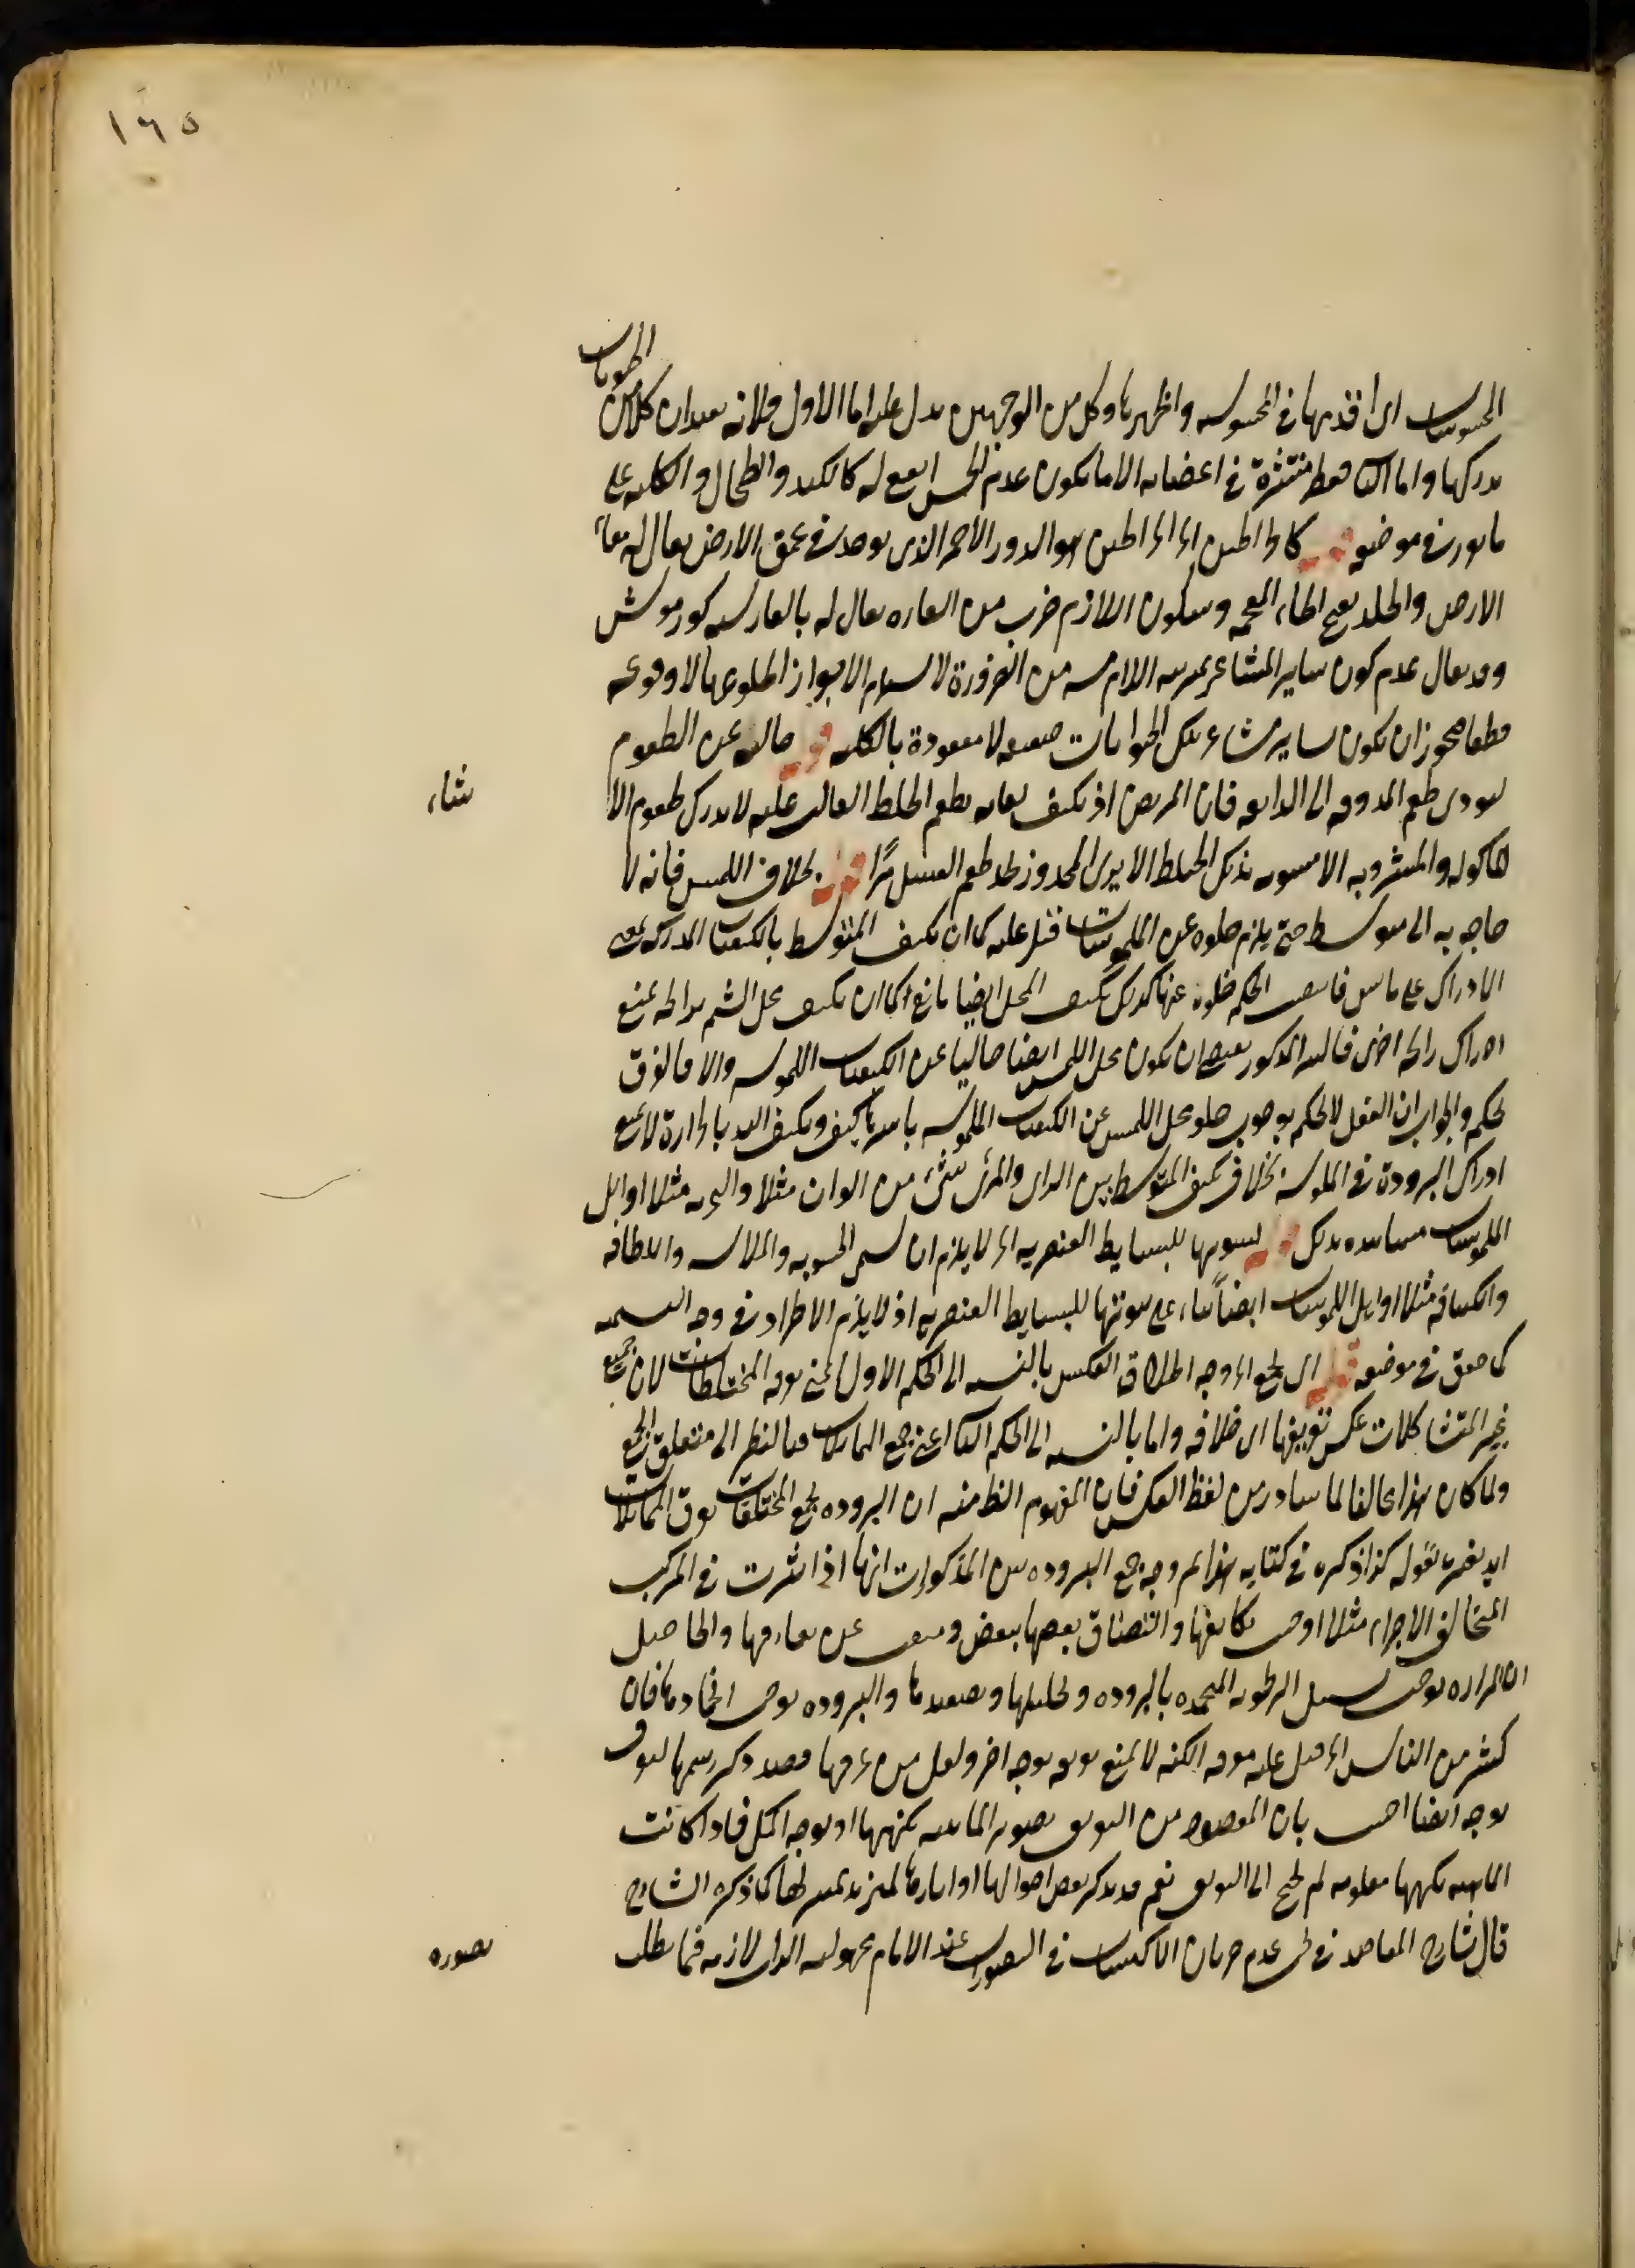 ١٦٥
المحسوسات اى اقدمها فى المحسوسية واظهرها وكل من الوجهين يدل عليه اما الاول فلانه يفيد ان كلا من
الحيوانات
يدركها واما الثانى فقط منتشرة فى اعضائه الا ما يكون عدم الحس انفع له كالكبد والطحال والكلية على
ما بين فى موضعه قوله كالخراطين الخراطين هو الدود الاحمر الذى يوجد فى عمق الارض يقال له معاء
الارض والخلد بفتح الخاء المعجمة وسكون اللام ضرب من الفارة يقال له بالفارسية كورموش
وقد يقال عدم كون ساير المشاعر بمرتبة اللامسة من الضرورة لا يستلزم الا جواز الخلو عنها لا وقوعه
قطعا فيجوز ان يكون ساير مشاعر تلك الحيوانات ضعيفة لا مفقودة بالكلية قوله خالية عن الطعوم
ليؤدى طعم المذوق الى الذائقة فان المريض اذ تكيف لعابه بطعم الخلط الغالب عليه لا يدرك طعوم الاشياء
الماكولة والمشروبة الا مشوبة بذلك الخلط الا يرى المحرور يجد طعم العسل مرا قوله بخلاف اللمس فانه لا
حاجة به الى متوسط حتى يلزم خلوه عن الملموسات قيل عليه كما ان تكيف المتوسط بالكيفيات المدركة يمنع
الادراك على ما بين فاستحق الحكم خلوه عنها كذلك تكيف المحل ايضا مانع كما ان تكيف محل الشم برائحة يمنع
ادراك رائحة اخرى فالدليل المذكور يقتضى ان يكون محل اللمس ايضا خاليا عن الكيفيات الملموسة والا فالفرق
تحكم والجواب ان العقل لا يحكم بوجوب خلو محل اللمس عن الكيفيات الملموسة باسرها كيف وتكيف اليد بالحرارة لا يمنع
ادراك البرودة فى الملموسة بخلاف تكيف المتوسط بين الرائى والمرئى بشىء من الوان مثلا والتجربة مثلا اوايل
الملموسات مشاهدة بذلك قوله لثبوتها للبسايط العنصرية اى لا يلزم ان يسمى الخشونة والملاسة واللطافة
والكثافة مثلا اوايل الملموسات ايضا بناء على ثبوتها للبسايط العنصرية اذ لا يلزم الاطراد فى وجه التسمية
كما حقق فى موضعه قوله اى يجمع وجه اطلاق العكس بالنسبة الى الحكم الاول اعنى تفريق المختلطات لان جميع
غير المتشاكلات عكس تفريقها اى خلافه واما بالنسبة الى الحكم الثانى اعنى جمع المتماثلات فبالنظر الى متعلق الجمع
ولما كان هذا مخالفا لما يتبادر من لفظ العكس فان المفهوم الظ منه ان البرودة تجمع المختلفات وتفرق المتماثلات
ايد تفسيره بقوله كذا ذكره فى كتابه هذا ثم وجه جمع البرودة بين المذكورات انها اذا اثرت فى المركب
المتخالف الاجزاء مثلا اوجب تكاثفها والتصاق بعضها ببعض ومنعت عن تفارقها والحاصل
ان الحرارة توجب تسييل الرطوبة المنجمدة بالبرودة وتحليلها وتصعيدها والبرودة توجب انجمادها فان
كثير من الناس قيل عليه معرفة الكنه لا يمنع تعريفه بوجه اخر ولعل من عرفها قصد ذكر رسمها ليعرف
بوجه ايضا اجيب بان المقصود من التعريف تصوير الماهية بكنهها او بوجه اكمل فاذا كانت
الماهية بكنهها معلومة لم يحتج الى التعريف نعم قد يذكر بعض احوالها او اثارها لمزيد تميز لها كما ذكره الشارح
قال شارح المقاصد فى بحث عدم جريان الاكتساب فى التصورات عند الامام مجهولية الذات لازمة فيما يطلب
تصوره